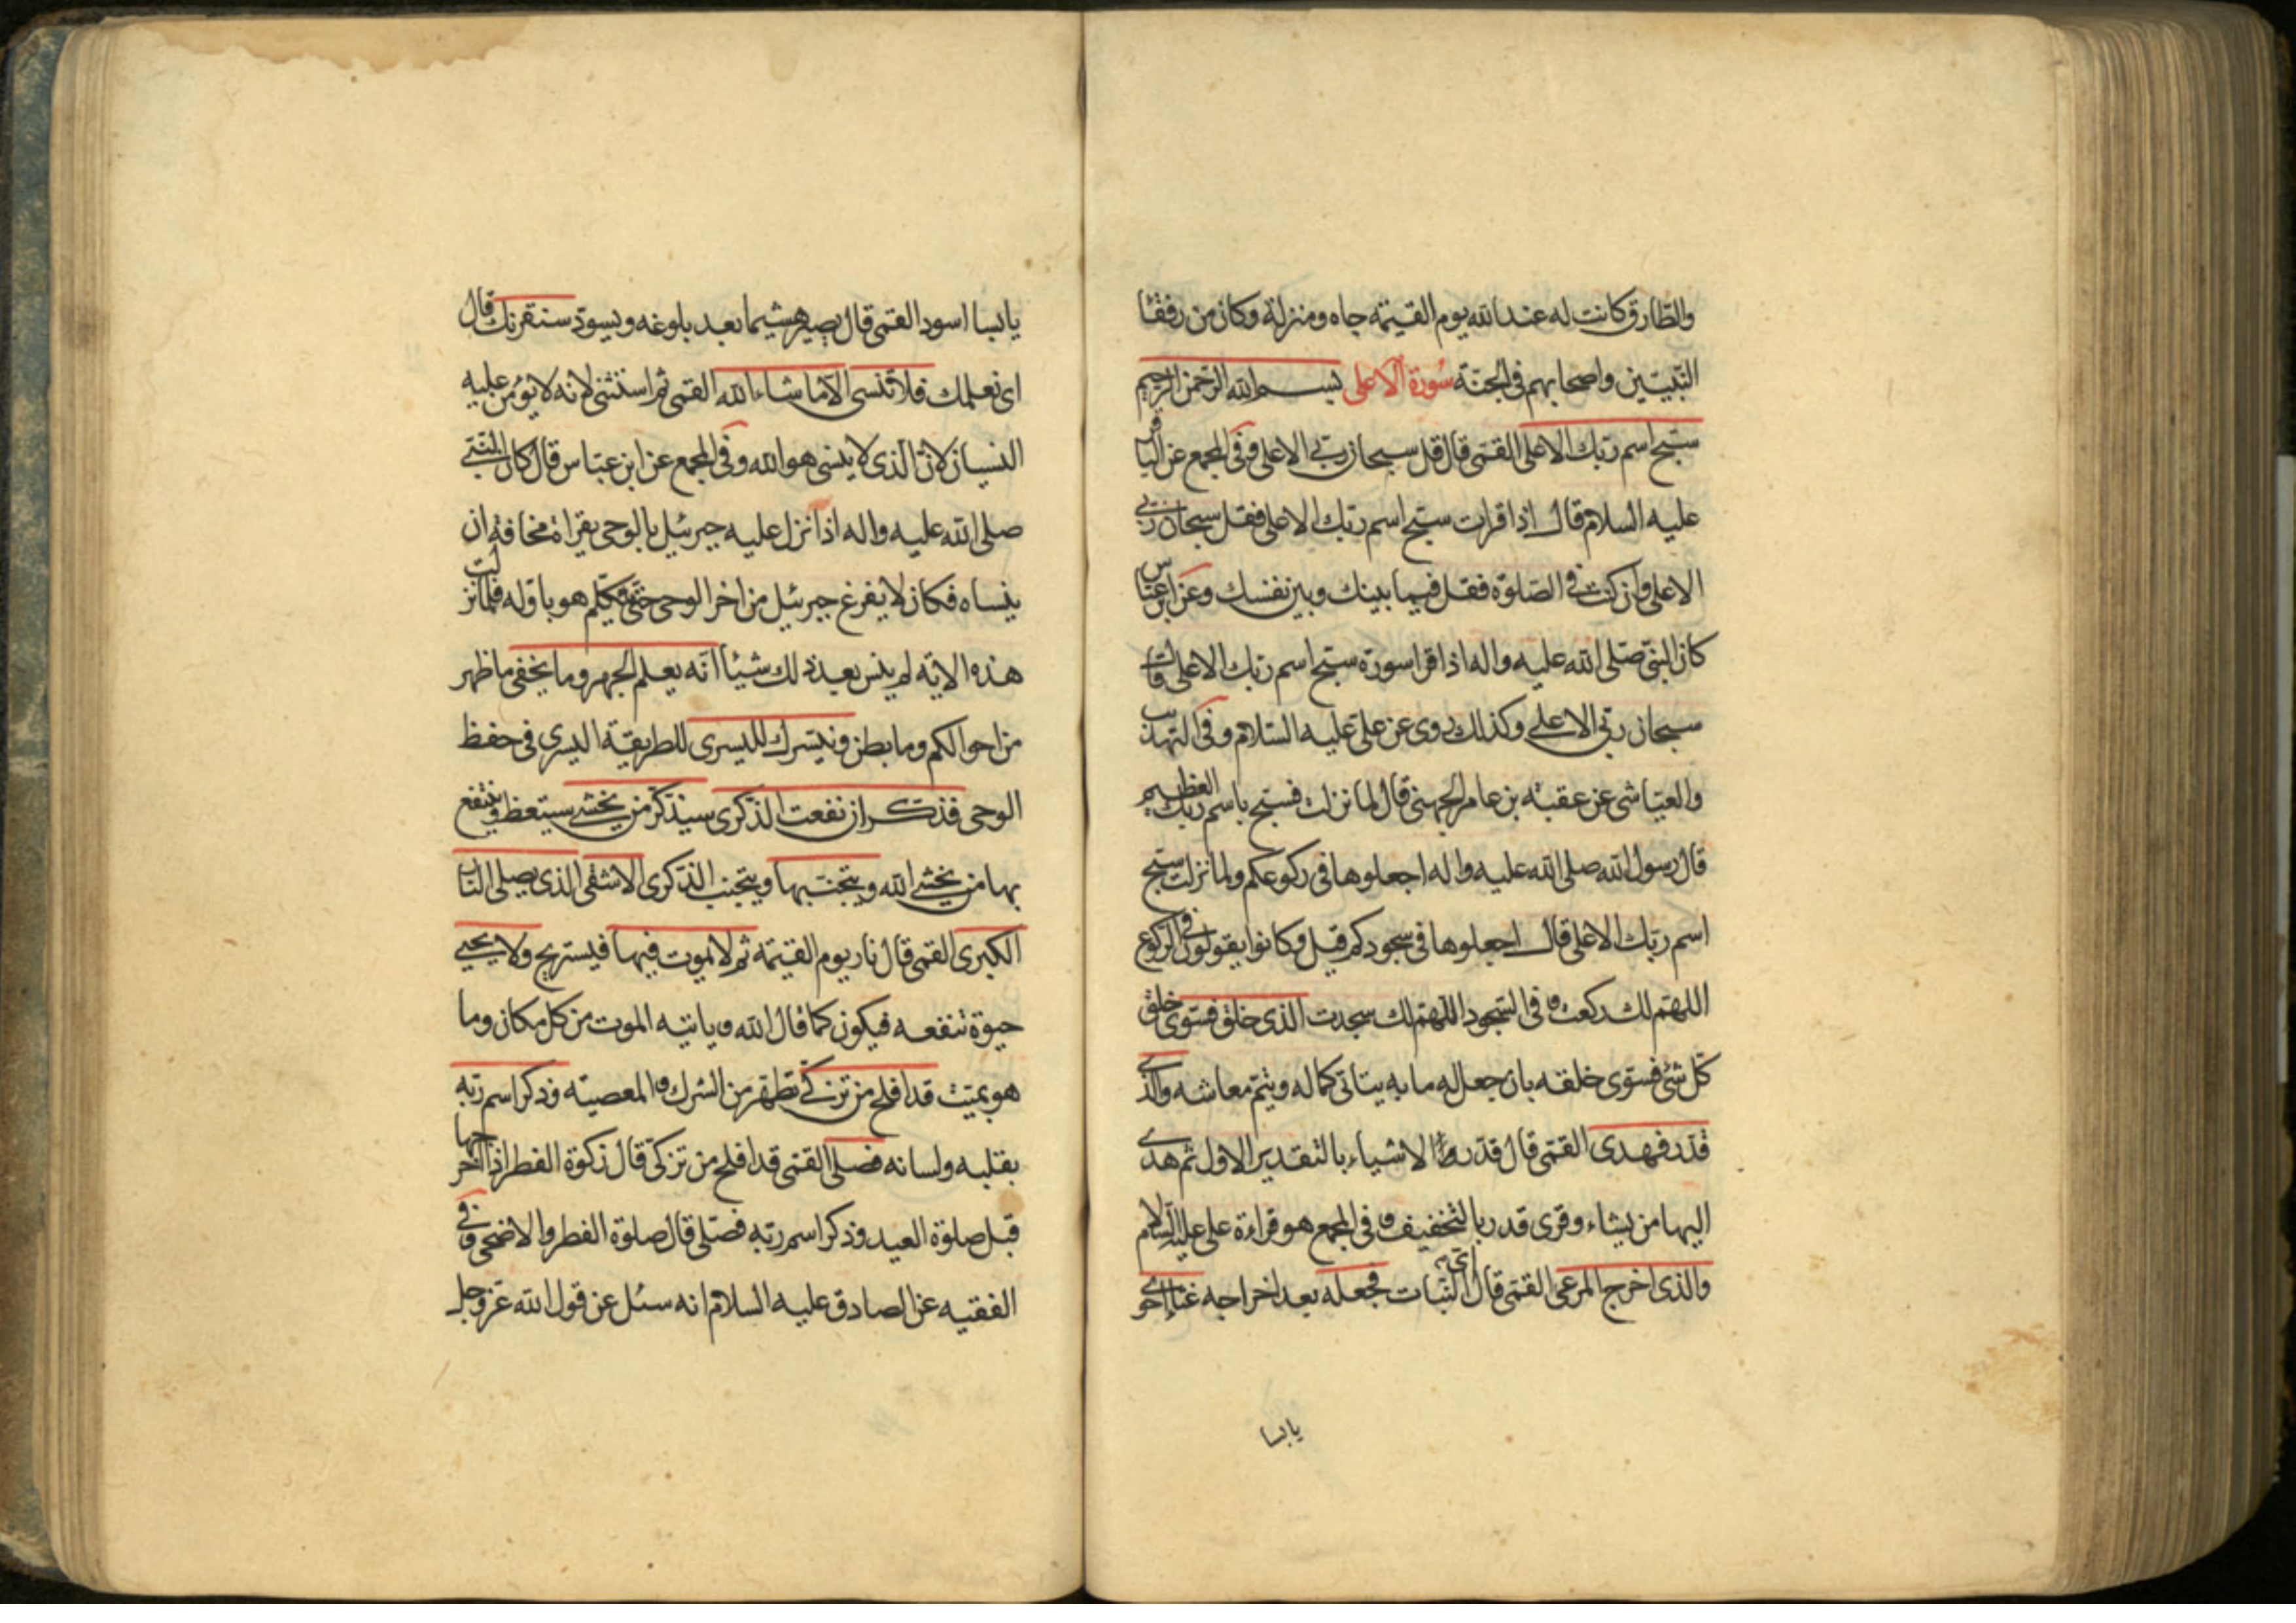 والطارق كانت له عند الله يوم القيمة جاه ومنزلة وكان من رفقا
النبيين واصحابهم فى الجنة سورة الاعلى بسم الله الرحمن الرحيم
سبح اسم ربك الاعلى القمى قال قل سبحان ربى الاعلى وفى المجمع عن الباقر
عليه السلام قال اذا قرات سبح اسم ربك الاعلى فقل سبحان ربى
الاعلى وان كنت فى الصلوة فقل فيما بينك وبين نفسك وعن ابن عباس
كان النبى صلى الله عليه واله اذا قرا سورة سبح اسم ربك الاعلى قال
سبحان ربى الاعلى وكذلك روى عن على عليه السلام وفى التهذيب
والعياشى عن عقبة بن عامر الجهنى قال لما نزلت فسبح باسم ربك العظيم
قال رسول الله صلى الله عليه واله اجعلوها فى ركوعكم ولما نزلت سبح
اسم ربك الاعلى قال اجعلوها فى سجودكم قيل وكانوا يقولون فى الركوع
اللهم لك ركعت و فى السجود اللهم لك سجدت الذى خلق فسوى خلق
كل شئ فسوى خلقه بان جعل له ما به يتاتى كماله ويتم معاشه والذى
قدر فهدى القمى قال قدر الاشياء بالتقدير الاول ثم هدى
اليها من يشاء وقرى قدر بالتخفيف و فى المجمع هو قراءة على عليه السلام
والذى اخرج المرعى القمى قال اى النبات فجعله بعد اخراجه غثاء احوى
يابسا
يابسا اسود القمى قال يصير هشيما بعد بلوغه ويسود سنقرئك قال
اى نعلمك فلا تنسى الا ما شاء الله القمى ثم استثنى لانه لا يؤمن عليه
النسيان لان الذى لا ينسى هو الله وفى المجمع عن ابن عباس قال كان النبى
صلى الله عليه واله اذا نزل عليه جبرئيل بالوحى يقراه مخافة ان
ينساه فكان لا يفرغ جبرئيل من اخر الوحى حتى يتكلم هو باوله فلما نزلت
هذه الاية لم ينس بعد ذلك شيئا انه يعلم الجهر وما يخفى ما ظهر
من احوالكم وما بطن ونيسرك لليسرى للطريقة اليسرى فى حفظ
الوحى فذكر ان نفعت الذكرى سيذكر من يخشى سيتعظ وينتفع
بها من يخشى الله ويتجنبها ويتجنب الذكرى الاشقى الذى يصلى النار
الكبرى القمى قال نار يوم القيمة ثم لا يموت فيها فيستريح ولا يحيى
حيوة تنفعه فيكون كما قال الله و ياتيه الموت من كل مكان وما
هو بميت قد افلح من تزكى تطهر من الشرك و المعصية وذكر اسم ربه
بقلبه ولسانه فصلى القمى قد افلح من تزكى قال زكوة الفطر اذا اخرجها
قبل صلوة العيد وذكر اسم ربه فصلى قال صلوة الفطر والاضحى وفى
الفقيه عن الصادق عليه السلام انه سئل عن قول الله عز وجل